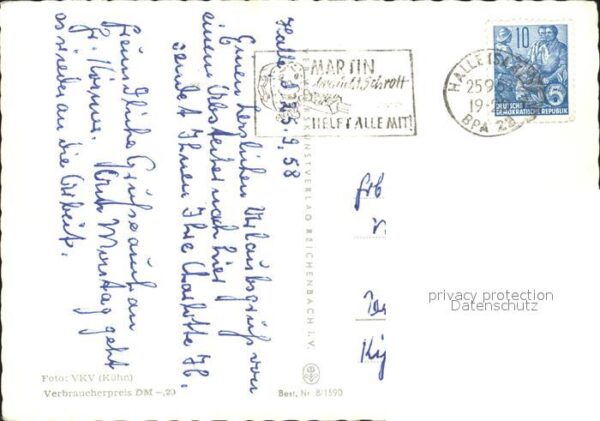 Halle, d. 25.9.58
Einen herzlichen Urlaubsgruß von
einem Abstecher nach hier
sendet Ihnen Ihre Charlotte H.
Freundliche Grüße auch an
Fr. Am Montag geht
es wieder an die Arbeit.
MARTIN
braucht Schrott
HELFT ALLE MIT!
HALLE (S
25.9.
19-
BPA 2
10
5
DEUTSCHE
DEMOKRATISCHE REPUBLIK
KUNSTVERLAG REICHENBACH I.V.
privacy protection
Datenschutz
Foto: VKV (Kühn)
Verbraucherpreis DM -,20
Best. Nr. 8/1590